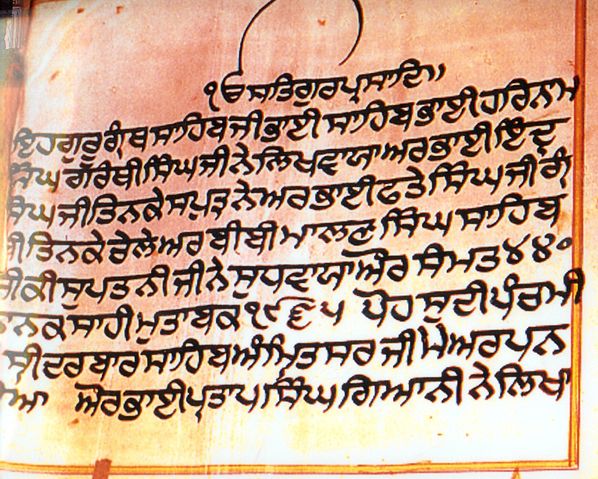 ੴ ਸਤਿਗੁਰ ਪ੍ਰਸਾਦਿ॥
ਇਹ ਗੁਰੂ ਗ੍ਰੰਥ ਸਾਹਿਬ ਜੀ ਭਾਈ ਸਾਹਿਬ ਭਾਈ ਹਰਿਨਾਮ
ਸਿੰਘ ਗਰੰਥੀ ਸਿੰਘ ਜੀ ਨੇ ਲਿਖਵਾਯਾ ਅਰ ਭਾਈ ਇੰਦ੍ਰ
ਸਿੰਘ ਜੀ ਤਿਨਕੇ ਸਪੁਤ੍ਰ ਨੇ ਅਰ ਭਾਈ ਫਤੇ ਸਿੰਘ ਜੀ ਗ੍ਰੰ
ਜੀ ਤਿਨਕੇ ਚੇਲੇ ਅਰ ਬੀਬੀ ਮਾਲਣ ਸਿੰਘ ਸਾਹਿਬ
ਜੀ ਕੀ ਸੁਪਤਨੀ ਜੀ ਨੇ ਸੁਧਵਾਯਾ ਔਰ ਸੰਮਤ ੪੪੦
ਨਾਨਕ ਸਾਹੀ ਮੁਤਾਬਕ ੧੯੬੫ ਪੋਹ ਸੁਦੀ ਪੰਚਮੀ
ਸ੍ਰੀ ਦਰਬਾਰ ਸਾਹਿਬ ਅੰਮ੍ਰਿਤਸਰ ਜੀ ਮੇ ਅਰਪਨ
ਔਰ ਭਾਈ ਪ੍ਰਤਾਪ ਸਿੰਘ ਗਿਆਨੀ ਨੇ ਲਿਖਾ